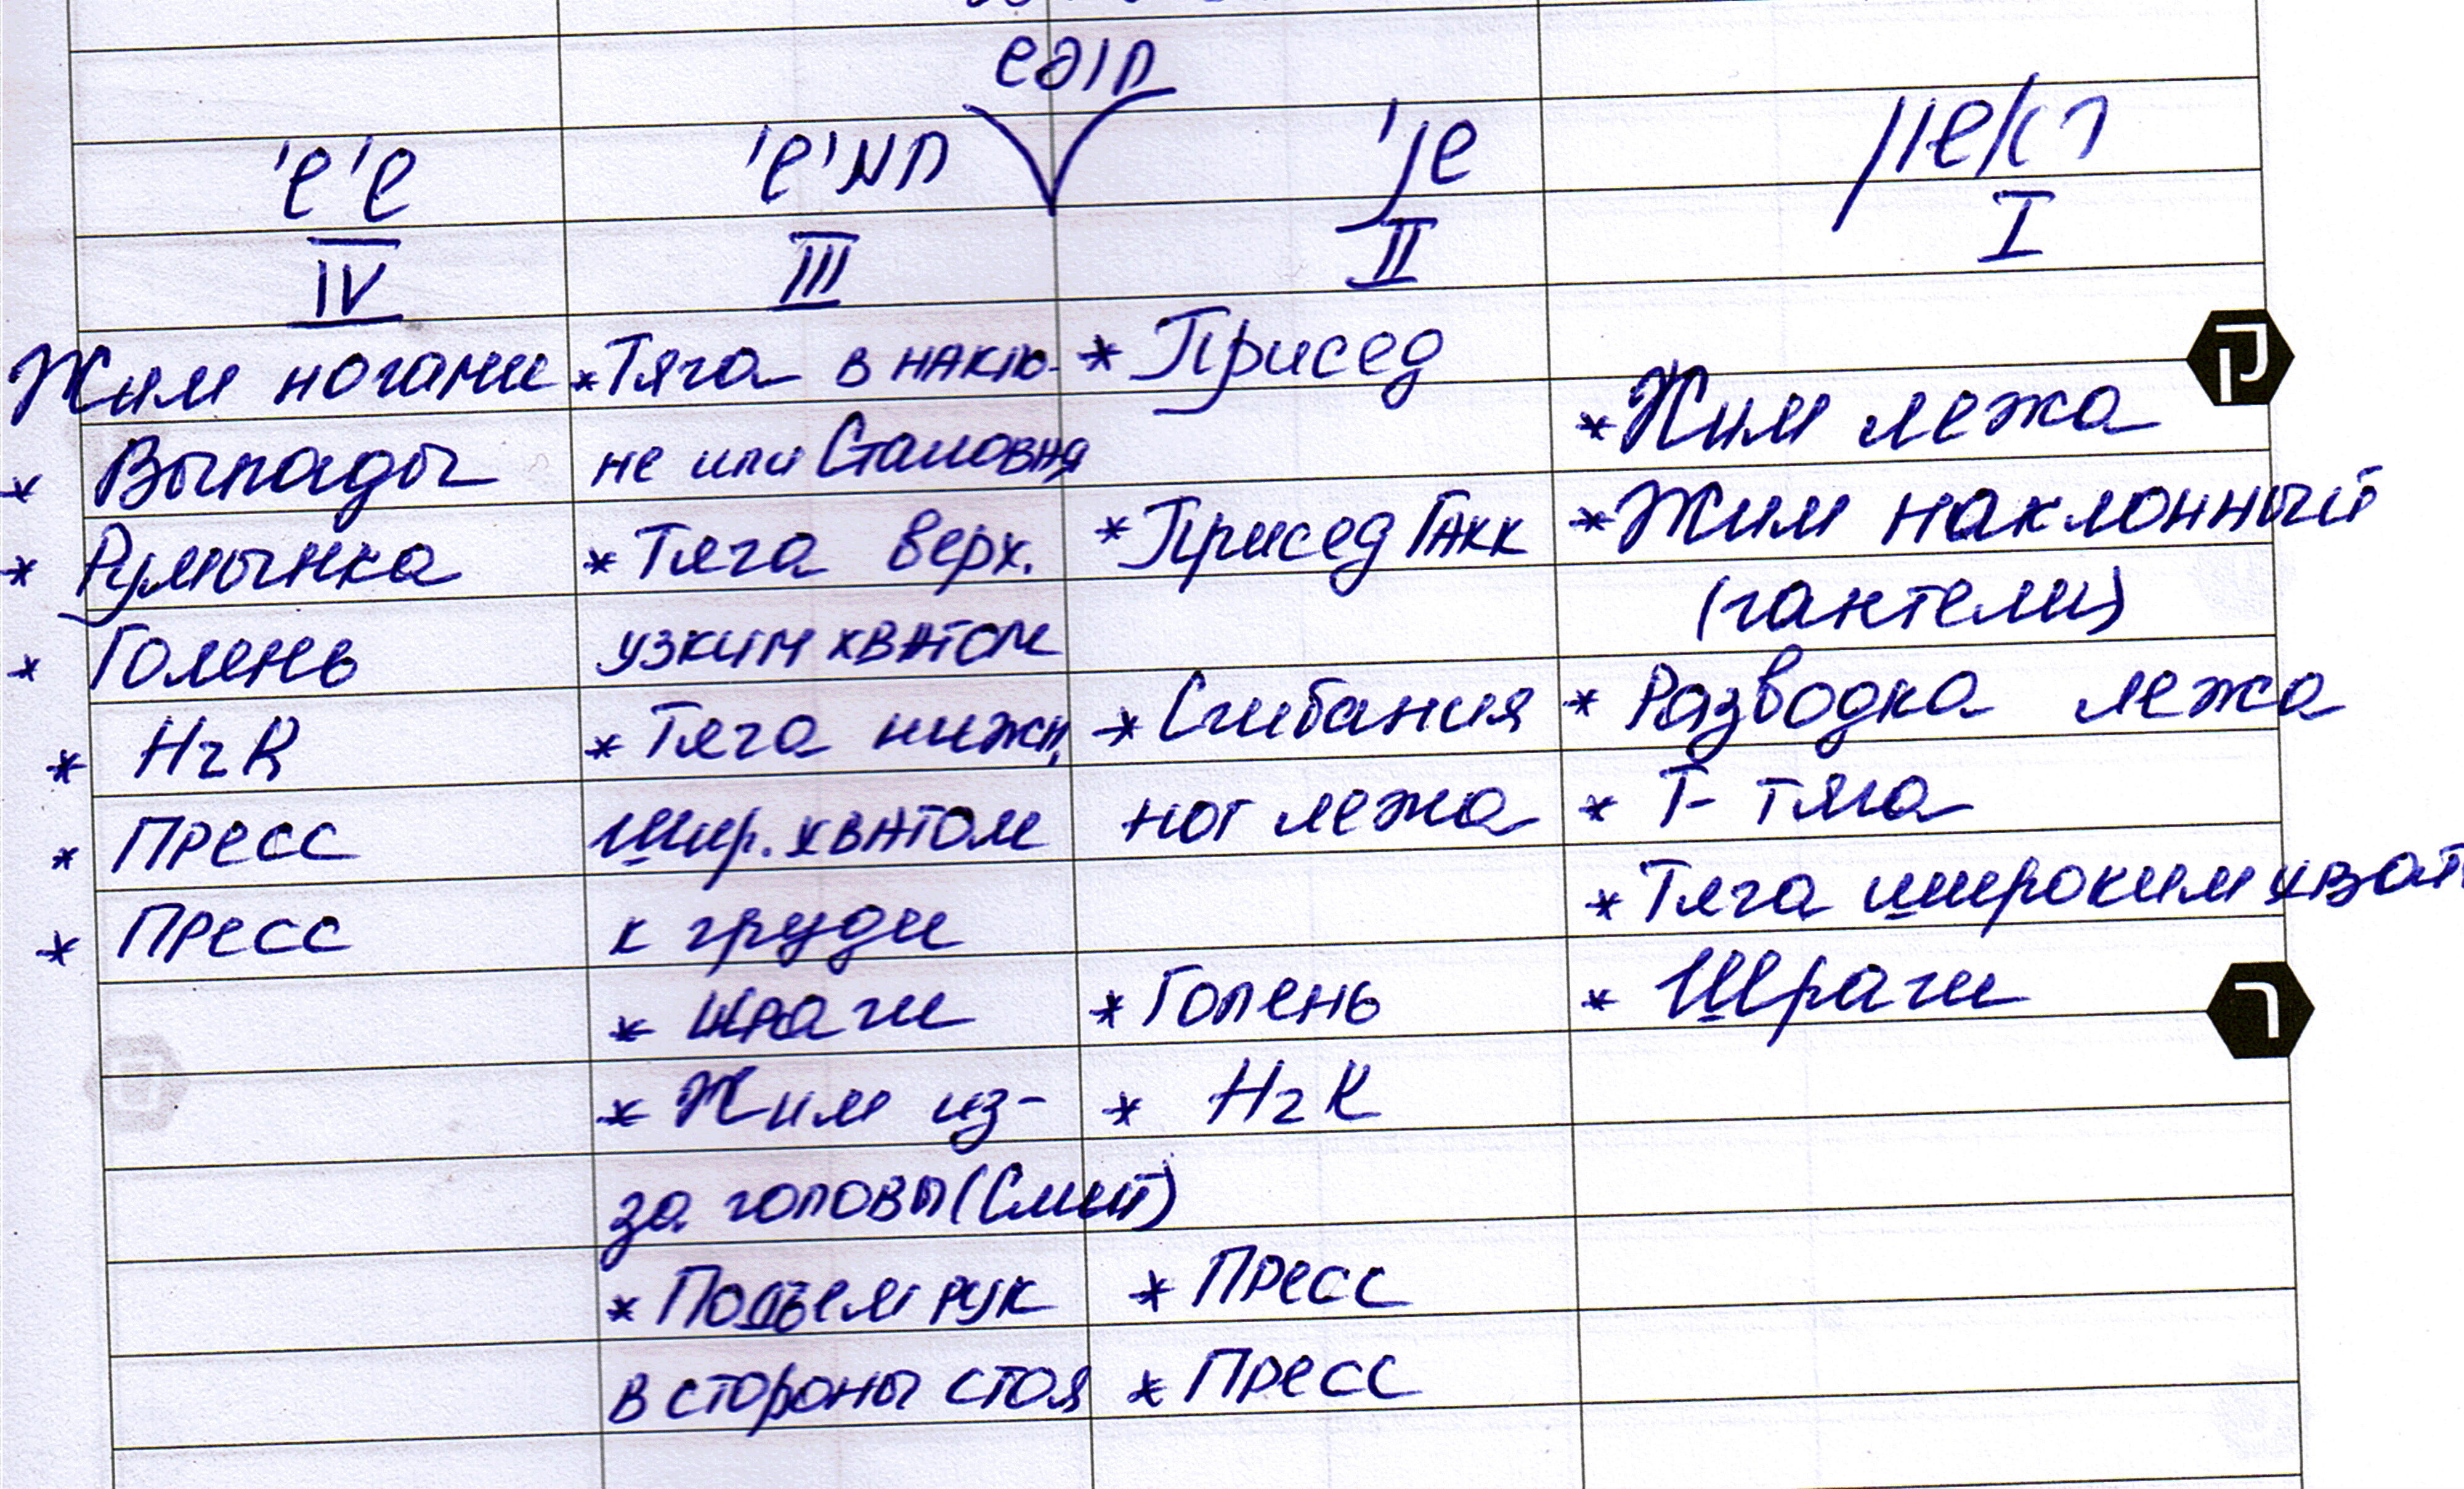 חופש
ראשון
I
* Жим лежа
* Жим наклонный
(гантели)
* Разводка лежа
* Т- тяга
* Тяга широким хват
* Шраги
שני
II
* Присед
* Присед Гакк
* Сгибания
ног лежа
* Голень
* НгК
* Пресс
* Пресс
חמישי
III
* Тяга в накло-
не или Становая
* Тяга верх.
узким хватом
* Тяга нижн.
шир. хватом
к груди
* Шраги
* Жим из-
за головы (Смит)
* Подъем рук
в стороны стоя
שישי
IV
Жим ногами
* Выпады
* Румынка
* Голень
* НгК
* Пресс
* Пресс
ק
ר